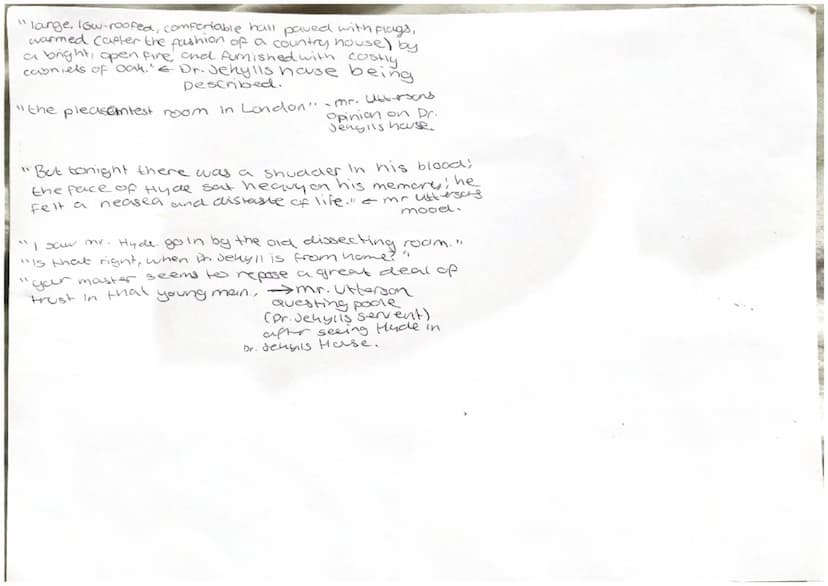 "large, low-roofed, comfortable hall paved with flags,
warmed (after the fashion of a country house) by
a bright, open fire, and furnished with costly
cabniets of oak." ← Dr. Jekylls house being
described.
"the pleasentest room in London" - mr. Uttersons
opinion on Dr.
Jekylls house.
"But tonight there was a shudder in his blood;
the face of Hyde sat heavy on his memory; he
felt a neasea and distaste of life." ← mr Uttersons
mood.
"I saw mr. Hyde go in by the old dissecting room."
"Is that right, when Dr Jekyll is from home?"
"your master seems to repose a great deal of
trust in that young man, → mr. Utterson
questing poole
(Dr. Jekylls servent)
after seeing Hyde in
Dr. Jekylls House.